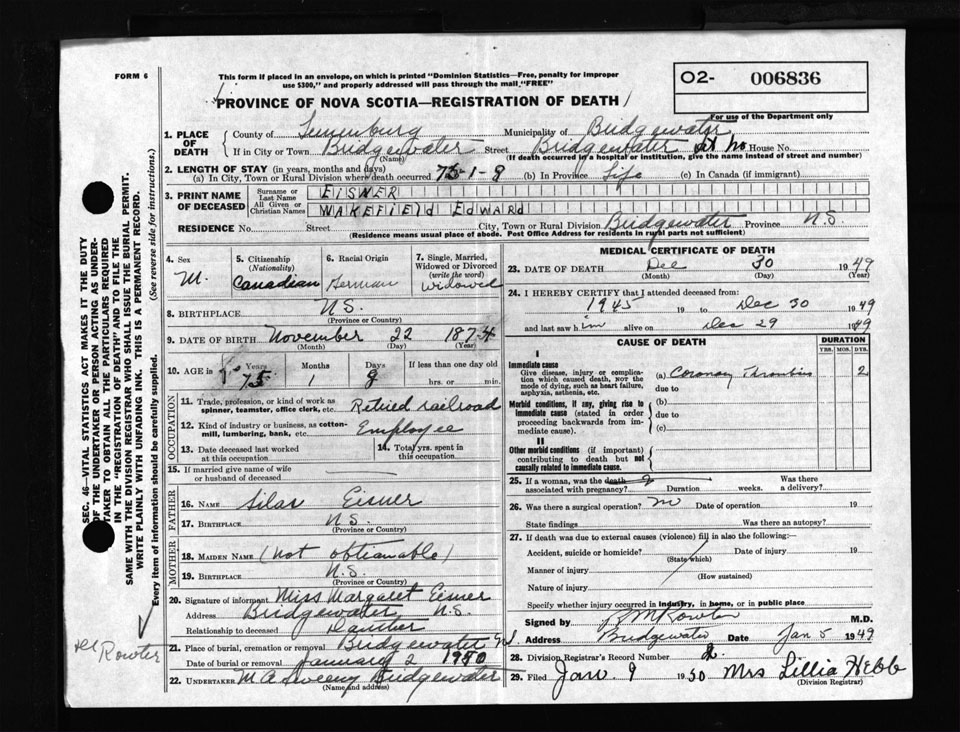 FORM 6
This form if placed in an envelope, on which is printed "Dominion Statistics—Free, penalty for improper
use $300," and properly addressed will pass through the mail "FREE"
PROVINCE OF NOVA SCOTIA—REGISTRATION OF DEATH
O2- 006836
For use of the Department only
1. PLACE OF DEATH
County of Lunenburg Municipality of Bridgewater
If in City or Town Bridgewater Street Bridgewater House No.
(Name) (If death occurred in a hospital or institution, give the name instead of street and number)
2. LENGTH OF STAY (in years, months and days)
(a) In City, Town or Rural Division where death occurred 75-1-8 (b) In Province Life (c) In Canada (if immigrant)
3. PRINT NAME OF DECEASED
Surname or Last Name EISNER
All Given or Christian Names WAKEFIElD EdwARd
RESIDENCE No. Street City, Town or Rural Division Bridgewater Province N.S.
(Residence means usual place of abode. Post Office Address for residents in rural parts not sufficient)
4. Sex M.
5. Citizenship (Nationality) Canadian
6. Racial Origin German
7. Single, Married, Widowed or Divorced (write the word) Widowed
8. BIRTHPLACE N.S.
(Province or Country)
9. DATE OF BIRTH November 22 1874
(Month) (Day) (Year)
10. AGE in Years Months Days If less than one day
75 1 8 hrs. or min.
OCCUPATION
11. Trade, profession, or kind of work as spinner, teamster, office clerk, etc. Retired railroad
12. Kind of industry or business, as cotton-mill, lumbering, bank, etc. Employee
13. Date deceased last worked at this occupation
14. Total yrs. spent in this occupation
15. If married give name of wife or husband of deceased
FATHER
16. NAME Silas Eisner
17. BIRTHPLACE N.S.
(Province or Country)
MOTHER
18. MAIDEN NAME (not obtianable)
19. BIRTHPLACE N.S.
(Province or Country)
20. Signature of informant Miss Margaret Eisner
Address Bridgewater N.S.
Relationship to deceased
21. Place of burial, cremation or removal Bridgewater
Date of burial or removal January 2 1950
22. UNDERTAKER M A Sweeny Bridgewater
(Name and address)
MEDICAL CERTIFICATE OF DEATH
23. DATE OF DEATH Dec 30 1949
(Month) (Day) (Year)
24. I HEREBY CERTIFY that I attended deceased from:
1945 19 to Dec 30 1949
and last saw him alive on Dec 29 1949
CAUSE OF DEATH
DURATION
YRS. MOS. DYS.
I
Immediate cause
Give disease, injury or complication which caused death, NOT the mode of dying, such as heart failure, asphyxia, asthenia, etc.
(a) Coronary Thrombosis 2
due to
Morbid conditions, if any, giving rise to immediate cause (stated in order proceeding backwards from immediate cause).
(b)
due to
(c)
II
Other morbid conditions (if important) contributing to death but not causally related to immediate cause.
25. If a woman, was the death associated with pregnancy? Duration weeks. Was there a delivery?
26. Was there a surgical operation? no Date of operation 19
State findings Was there an autopsy?
27. If death was due to external causes (violence) fill in also the following:—
Accident, suicide or homicide? Date of injury 19
(State which)
Manner of injury
(How sustained)
Nature of injury
Specify whether injury occurred in industry, in home, or in public place
Signed by M.D.
Address Bridgewater Date Jan 5 1949
28. Division Registrar's Record Number 2.
29. Filed Jan 9 1950 Mrs Lillia Hebb
(Division Registrar)
SEC. 46—VITAL STATISTICS ACT MAKES IT THE DUTY
OF THE UNDERTAKER OR PERSON ACTING AS UNDERTAKER TO OBTAIN ALL THE PARTICULARS REQUIRED
IN THE "REGISTRATION OF DEATH" AND TO FILE THE
SAME WITH THE DIVISION REGISTRAR WHO SHALL ISSUE THE BURIAL PERMIT.
WRITE PLAINLY WITH UNFADING INK. THIS IS A PERMANENT RECORD.
Every item of information should be carefully supplied. (See reverse side for instructions.)
Rowter